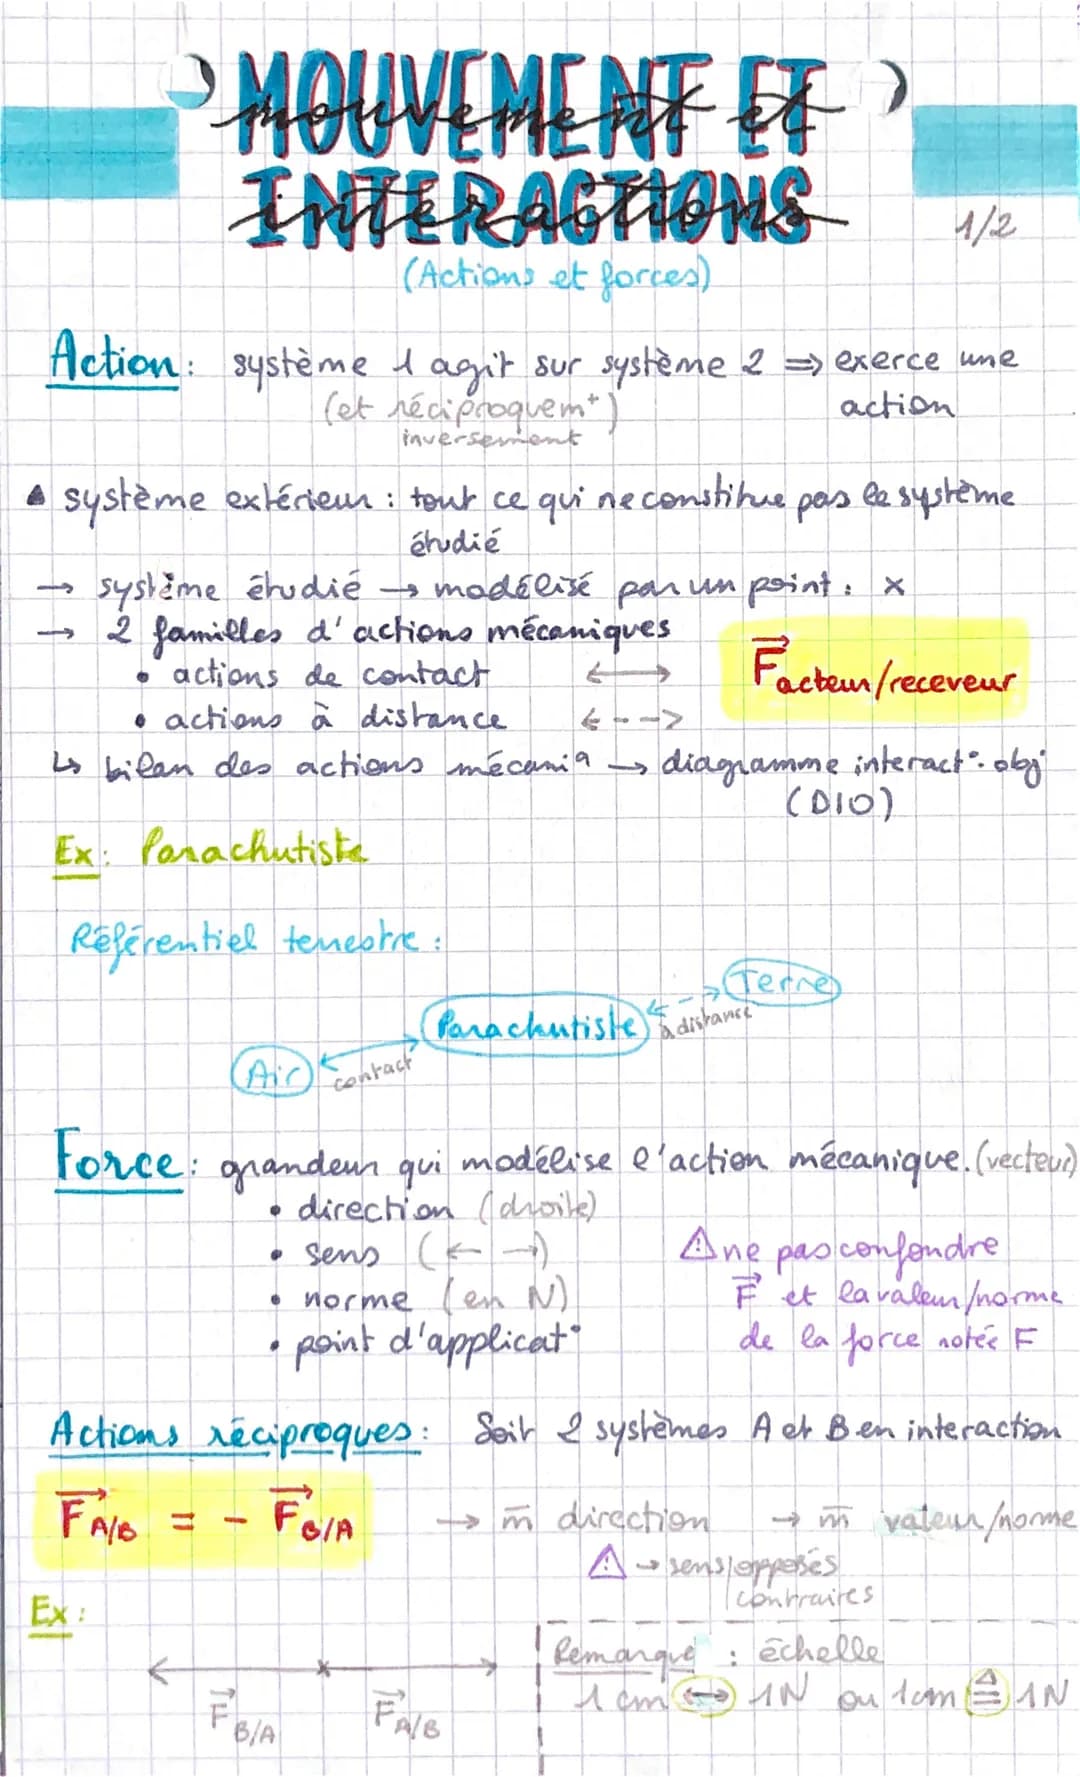 MOUVEMENT ET
mouvement et
INTERACTIONS
interactions
1/2
(Actions et forces)
Action : système 1 agit sur système 2 ⇒ exerce une
(et réciproquemt) action
inversement
système extérieur : tout ce qui ne constitue pas le système
étudié
→ système étudié → modélisé par un point : x
→ 2 familles d'actions mécaniques
• actions de contact ↔
F⃗ acteur/receveur
• actions à distance <--->
↳ bilan des actions mécaniq → diagramme interact° obj
(DIO)
Ex : Parachutiste
Référentiel terrestre :
Terre
Parachutiste
à distance
Air
contact
Force : grandeur qui modélise l'action mécanique. (vecteur)
• direction (droite)
• sens (← →)
• norme (en N)
• point d'applicat°
⚠ ne pas confondre
F⃗ et la valeur/norme
de la force notée F
Actions réciproques : Soit 2 systèmes A et B en interaction
F⃗ A/B = - F⃗ B/A → m̄ direction → m̄ valeur/norme
⚠ → sens opposés
contraires
Ex :
F⃗ B/A F⃗ A/B
Remarque : échelle
1 cm ↔ 1N ou 1cm ≙ 1N